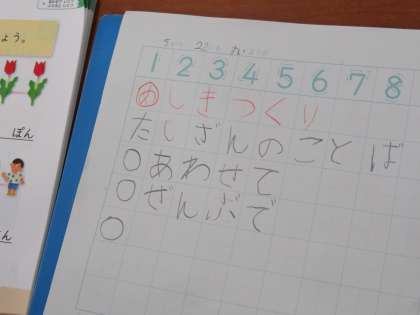 よう。
ぽん
1 2 3 4 5 6 7 8
め しきつくり
たしざんのことば
○あわせて
○ぜんぶで
○